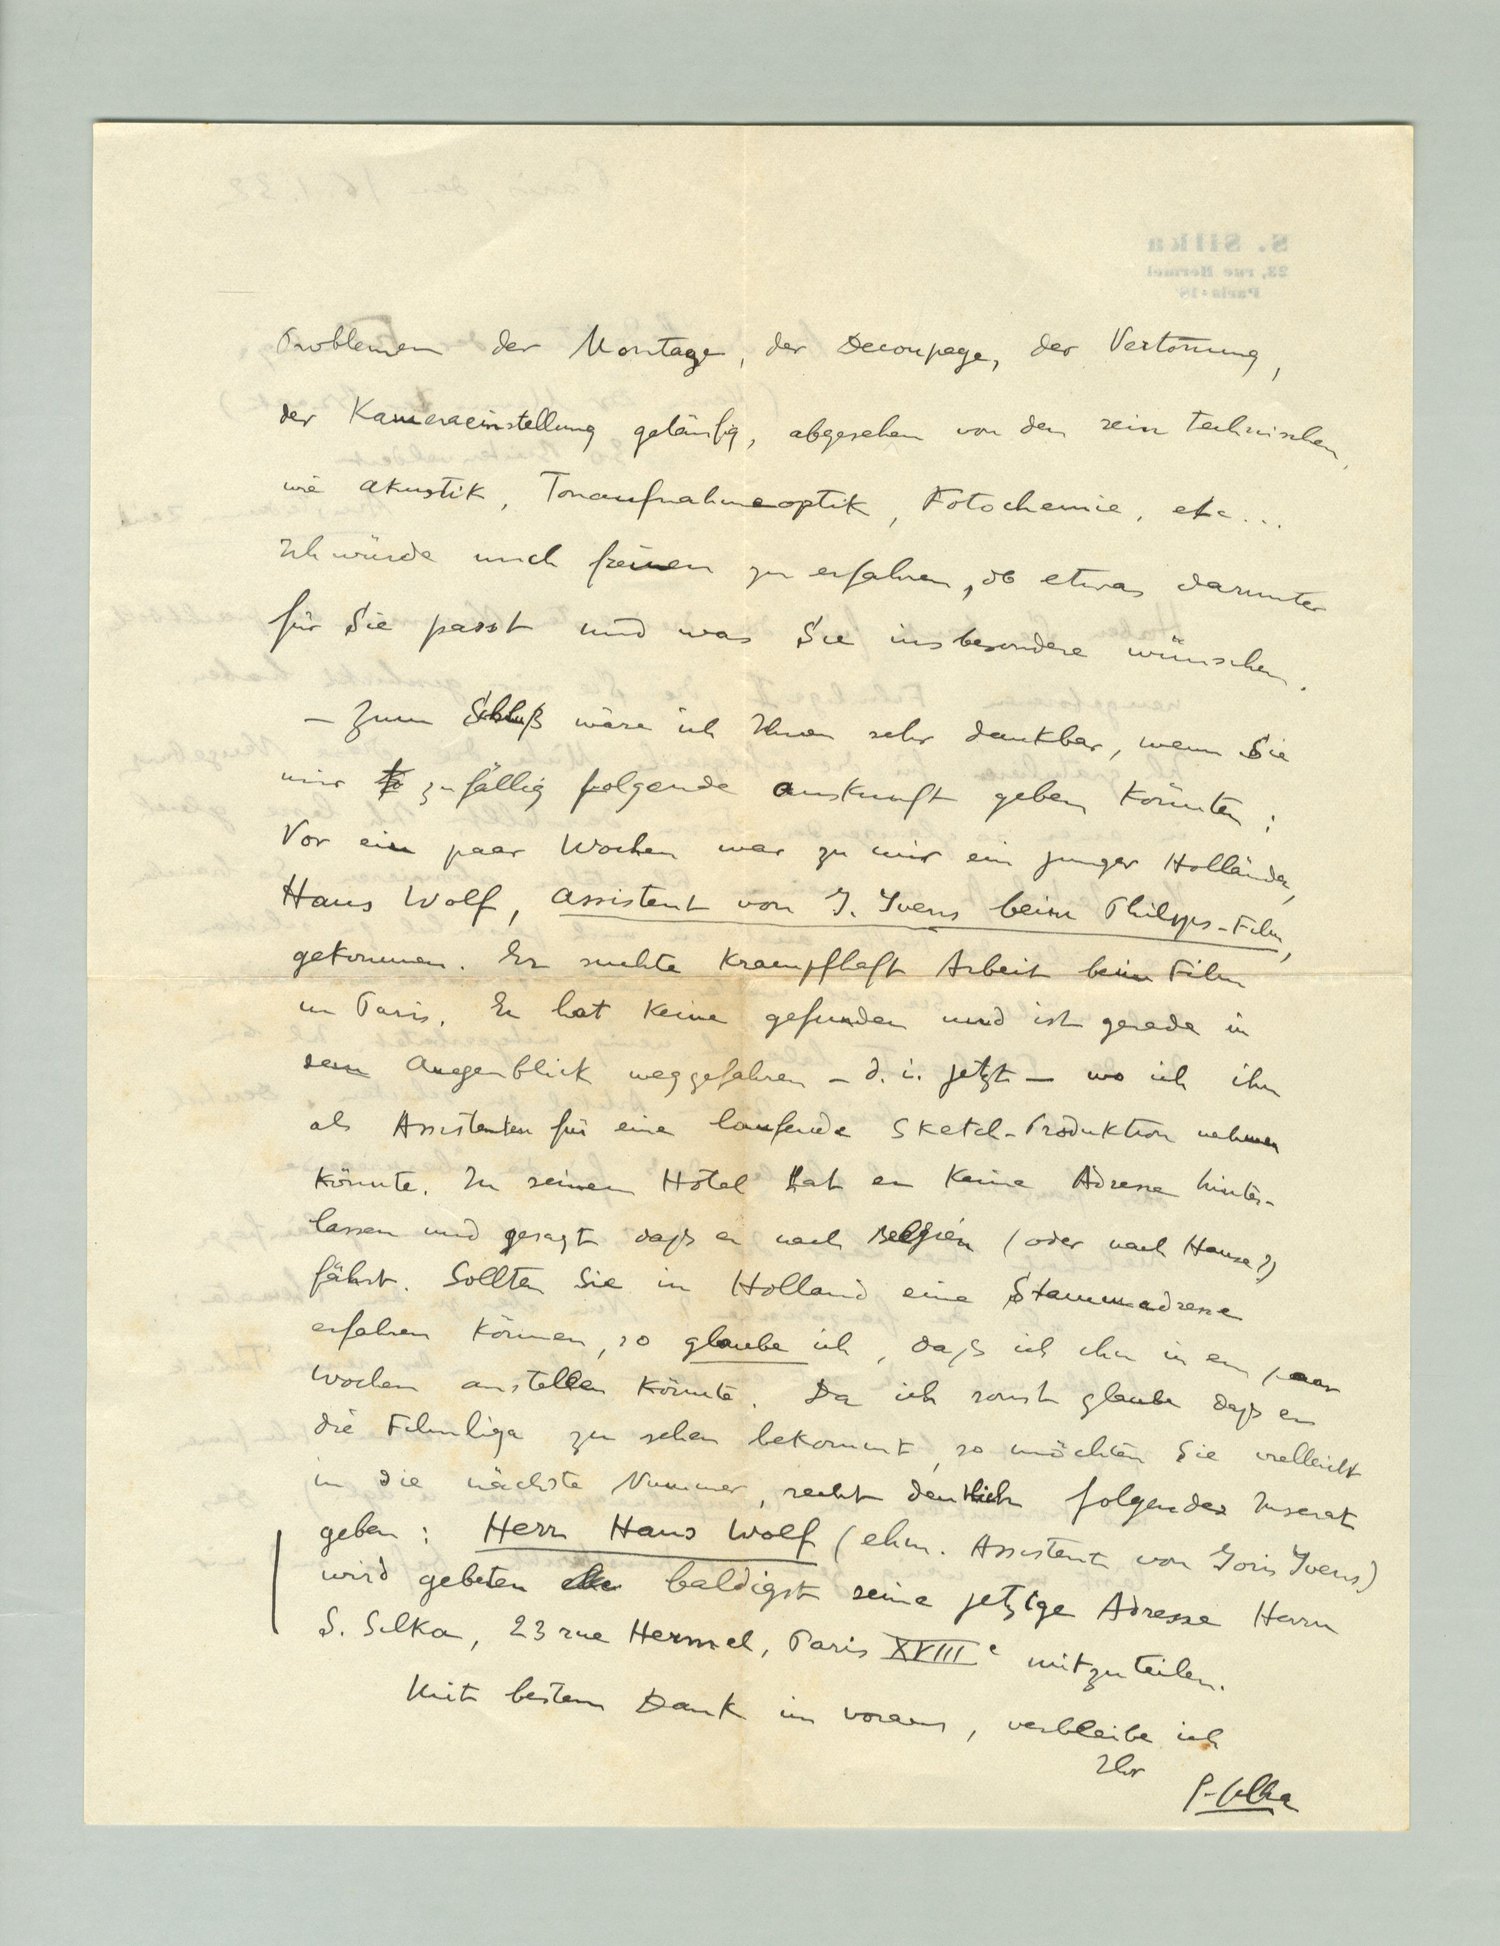 Problemen der Montage, der Decoupage, der Vertonung,
der Kameraeinstellung geläufig, abgesehen von den rein technischen,
wie Akustik, Tonaufnahmeoptik, Fotochemie, etc...
Ich würde mich freuen zu erfahren, ob etwas darunter
für Sie passt und was Sie insbesondere wünschen.
– Zum Schluß wäre ich Ihnen sehr dankbar, wenn Sie
mir zufällig folgende Auskunft geben könnten:
Vor ein paar Wochen war zu mir ein junger Holländer,
Hans Wolf, Assistent von J. Ivens beim Philipps-Film,
gekommen. Er suchte krampfhaft Arbeit beim Film
in Paris. Er hat keine gefunden und ist gerade in
dem Augenblick weggefahren – d. i. jetzt – wo ich ihn
als Assistenten für eine laufende Sketch-Produktion nehmen
könnte. In seinem Hôtel hat er keine Adresse hinter-
lassen und gesagt daß er nach Belgien (oder nach Hause?)
fährt. Sollten Sie in Holland eine Stammadresse
erfahren können, so glaube ich, daß ich ihn in ein paar
Wochen anstellen könnte. Da ich sonst glaube daß er
die Filmliga zu sehen bekommt, so möchten Sie vielleicht
in die nächste Nummer, recht deutlich folgendes Inserat
geben: Herr Hans Wolf (ehm. Assistent von Joris Ivens)
wird gebeten baldigst seine jetzige Adresse Herrn
S. Silka, 23 rue Hermel, Paris XVIIIe mitzuteilen.
Mit bestem Dank im voraus, verbleibe ich
Ihr
S. Silka
S. Silka
23, rue Hermel
Paris-18